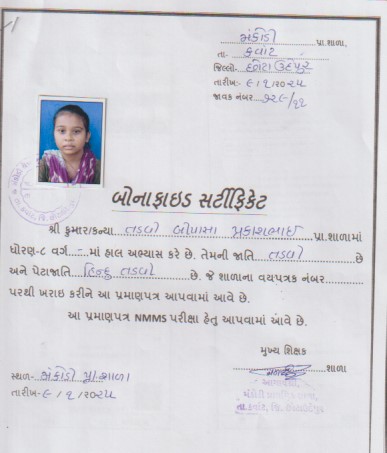 પ્રા.શાળા,
તા- કવાંટ
જિલ્લો- છોટા ઉદેપુર
તારીખ- ૯/૧/૨૦૨૫
જાવક નંબર
બોનાફાઇડ સર્ટીફિકેટ
શ્રી કુમાર/કન્યા તડવી પ્રકાશભાઈ પ્રા.શાળામાં
ધોરણ-૮ વર્ગ - માં હાલ અભ્યાસ કરે છે. તેમની જાતિ તડવી છે
અને પેટાજાતિ હિન્દુ તડવી છે. જે શાળાના વયપત્રક નંબર
પરથી ખરાઇ કરીને આ પ્રમાણપત્ર આપવામાં આવે છે.
આ પ્રમાણપત્ર NMMS પરીક્ષા હેતુ આપવામાં આવે છે.
મુખ્ય શિક્ષક
શાળા
સ્થળ- પ્રા.શાળા
તારીખ- ૯/૧/૨૦૨૫